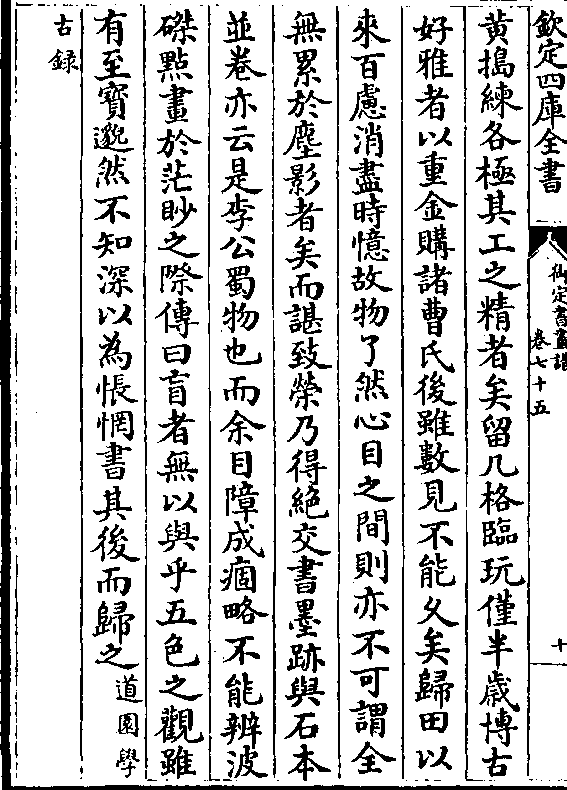 欽定四庫全書
御定書畫譜
卷七十五
十
黄搗練各極其工之精者矣留几格臨玩僅半歲博古
好雅者以重金購諸曹氏後雖數見不能久矣歸田以
來百慮消盡時憶故物了然心目之間則亦不可謂全
無累於塵影者矣而諶致榮乃得絶交書墨跡與石本
並卷亦云是李公蜀物也而余目障成痼略不能辨波
磔點畫於茫眇之際傳曰盲者無以與乎五色之觀雖
有至寳邈然不知深以為悵惘書其後而歸之道園學
古録